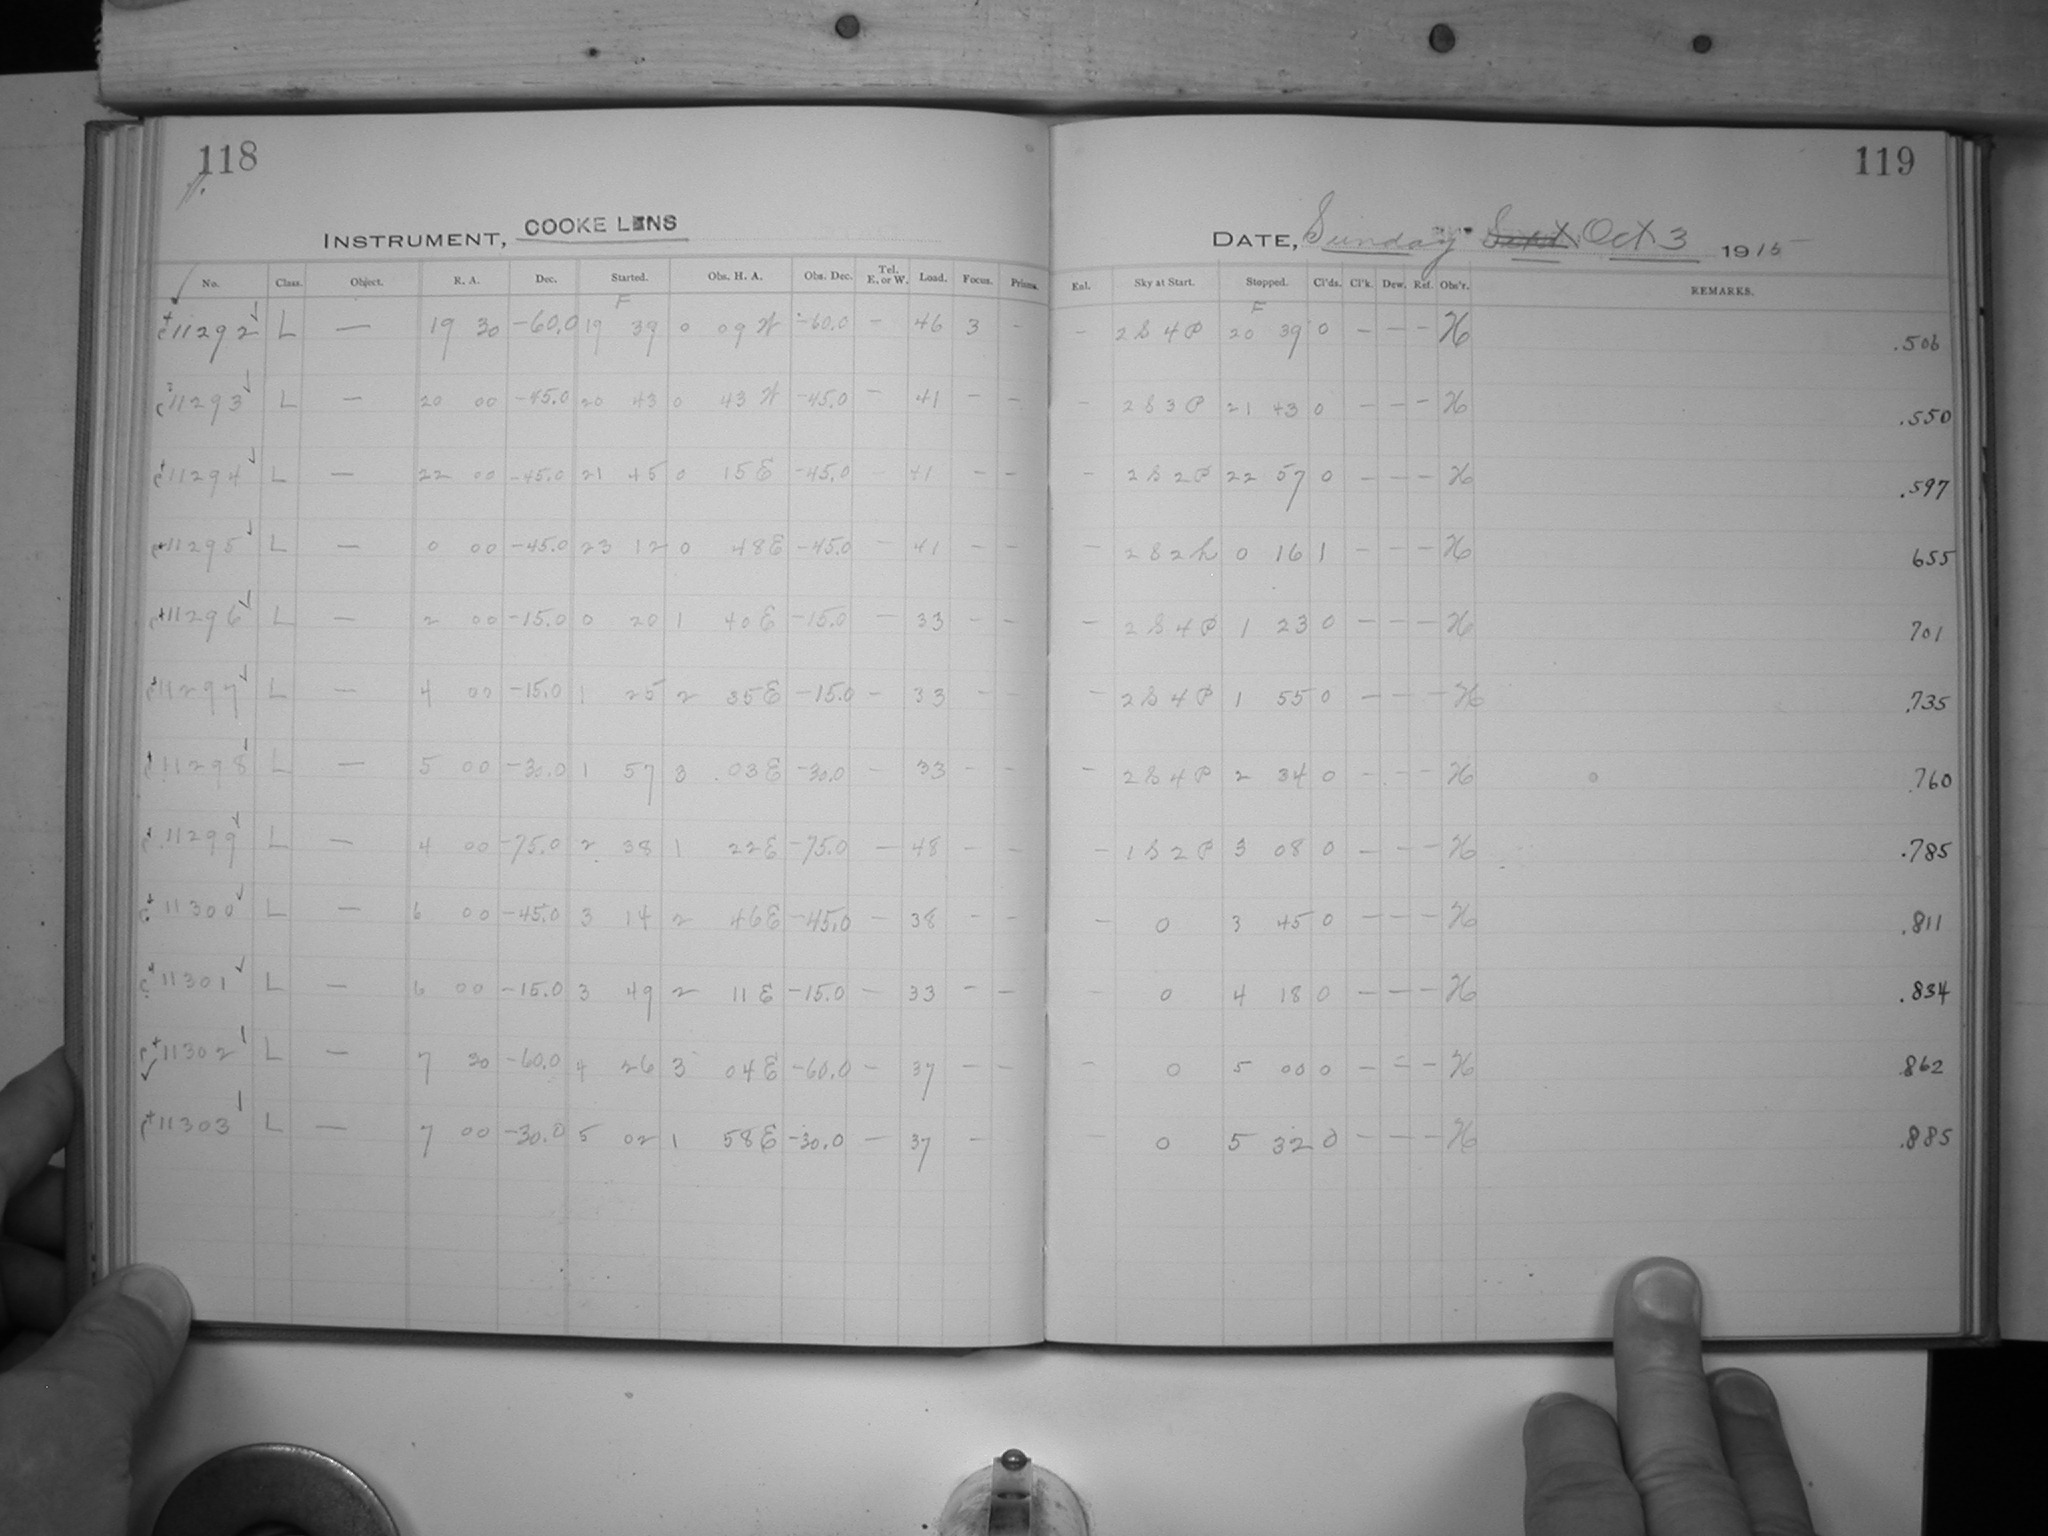 118
INSTRUMENT, COOKE LENS
No. Class. Object. R. A. Dec. Started. Obs. H. A. Obs. Dec. Tel. E. or W. Load. Focus. Prisms.
F
c11292 L — 19 30 -60.0 19 39 0 09 W -60.0 - 46 3 -
c11293 L — 20 00 -45.0 20 43 0 43 W -45.0 - 41 - -
c11294 L — 22 00 -45.0 21 45 0 15 E -45.0 - 41 - -
c11295 L — 0 00 -45.0 23 12 0 48 E -45.0 - 41 - -
c11296 L — 2 00 -15.0 0 20 1 40 E -15.0 - 33 - -
c11297 L — 4 00 -15.0 1 25 2 35 E -15.0 - 33 - -
c11298 L — 5 00 -30.0 1 57 3 03 E -30.0 - 33 - -
c11299 L — 4 00 -75.0 2 38 1 22 E -75.0 - 48 - -
c11300 L — 6 00 -45.0 3 14 2 46 E -45.0 - 38 - -
c11301 L — 6 00 -15.0 3 49 2 11 E -15.0 - 33 - -
c11302 L — 7 30 -60.0 4 26 3 04 E -60.0 - 37 - -
c11303 L — 7 00 -30.0 5 02 1 58 E -30.0 - 37 -
119
DATE, Sunday Sept Oct 3 1915
Enl. Sky at Start. Stopped. Cl'ds. Cl'k. Dew. Ref. Obs'r. REMARKS.
F
- 2 S 4 P 20 39 0 - - - H .506
- 2 S 3 P 21 43 0 - - - H .550
- 2 S 2 P 22 57 0 - - - H .597
- 2 S 2 h 0 16 1 - - - H 655
- 2 S 4 P 1 23 0 - - - H 701
- 2 S 4 P 1 55 0 - - - H .735
- 2 S 4 P 2 34 0 - - - H .760
- 1 S 2 P 3 08 0 - - - H .785
- 0 3 45 0 - - - H .811
- 0 4 18 0 - - - H .834
- 0 5 00 0 - - - H .862
- 0 5 32 0 - - - H .885